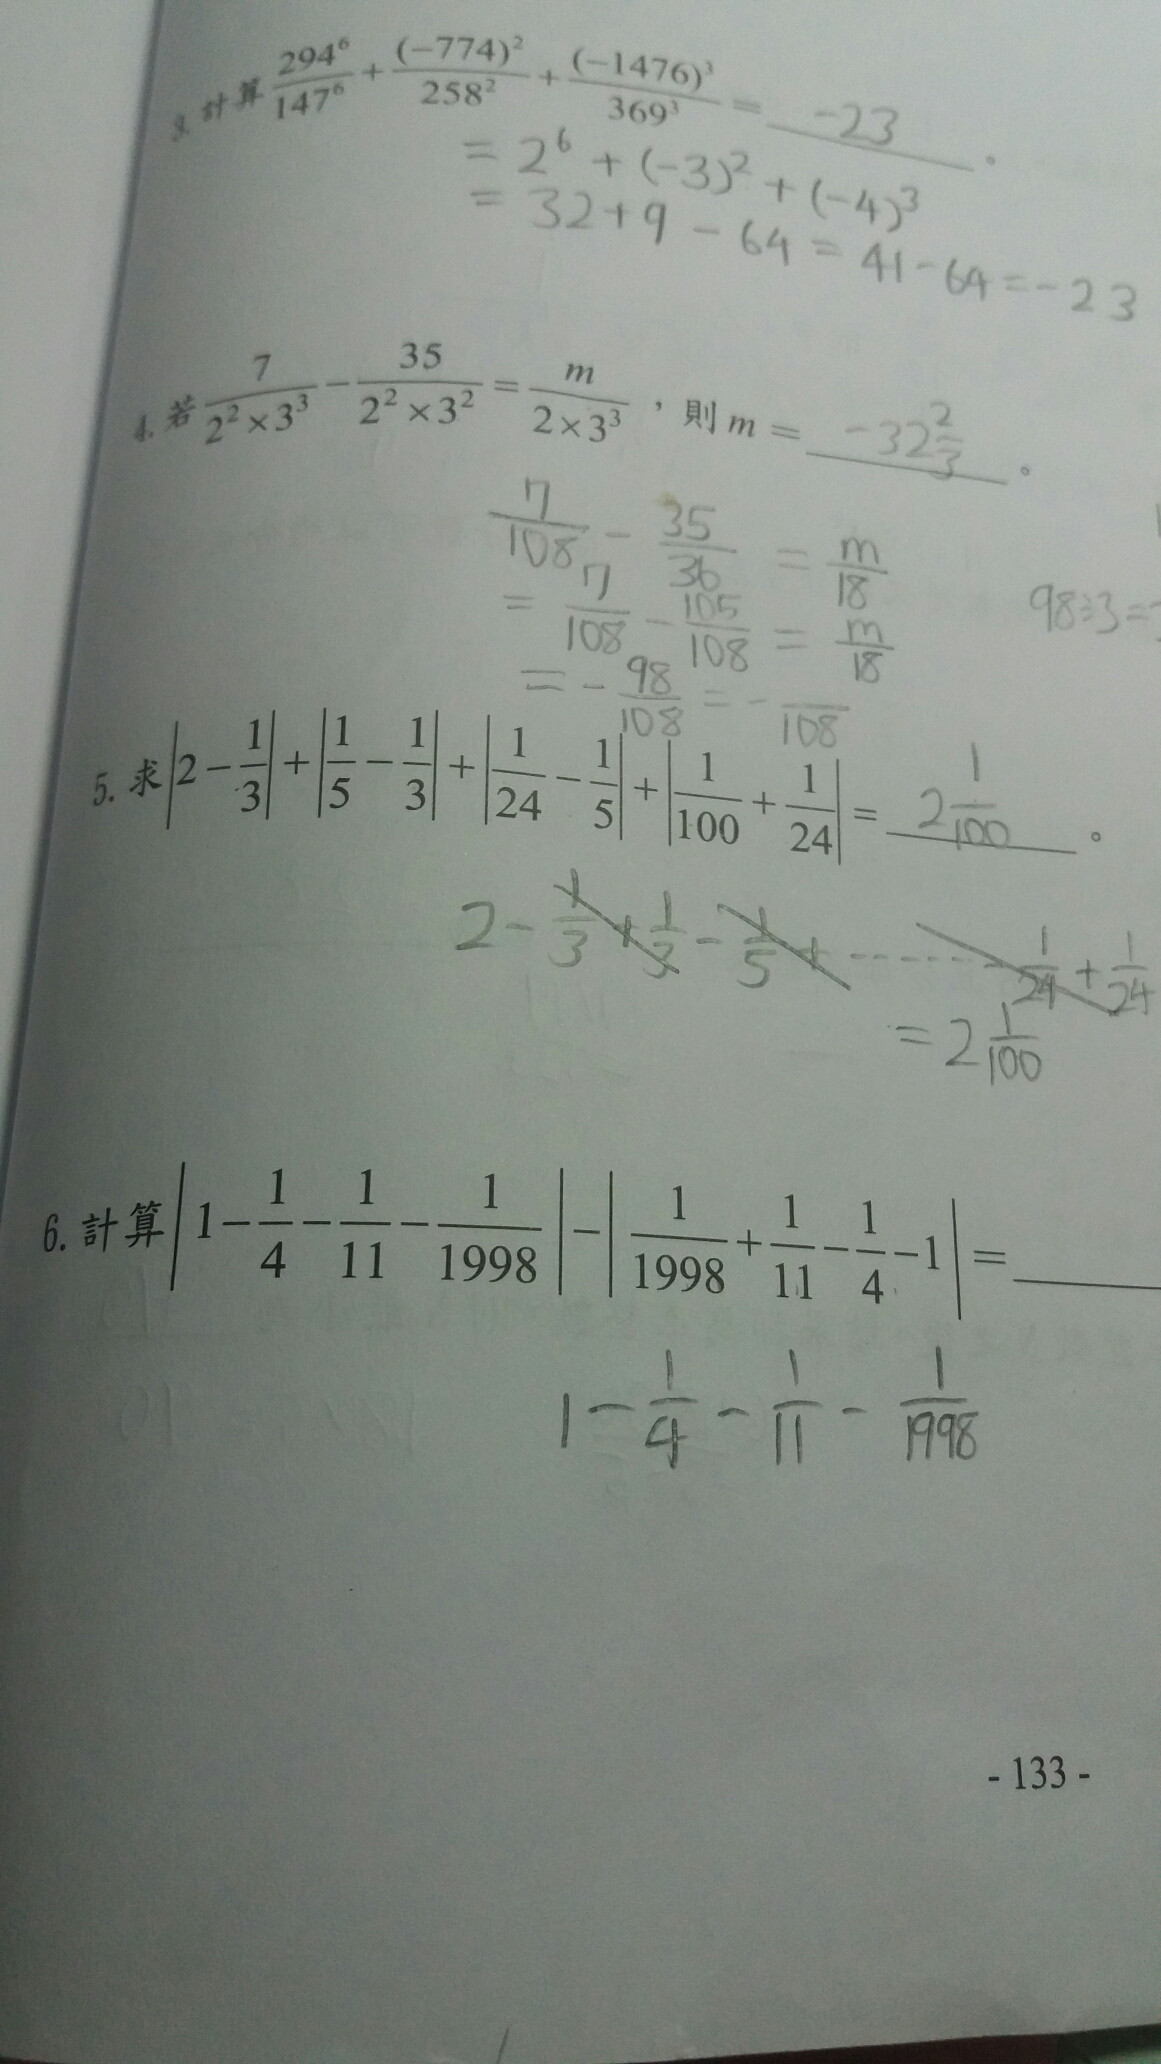 3. 計算 294⁶/147⁶ + (-774)²/258² + (-1476)³/369³ = -23 。
= 2⁶ + (-3)² + (-4)³
= 32 + 9 - 64 = 41 - 64 = -23
4. 若 7/(2²×3³) - 35/(2²×3²) = m/(2×3³) ，則 m = -32 2/3 。
7/108 - 35/36 = m/18
= 7/108 - 105/108 = m/18
98÷3=
= - 98/108 = - /108
5. 求 |2 - 1/3| + |1/5 - 1/3| + |1/24 - 1/5| + |1/100 + 1/24| = 2 1/100 。
2 - 1/3 + 1/3 - 1/5 + ------ - 1/24 + 1/24
= 2 1/100
6. 計算 |1 - 1/4 - 1/11 - 1/1998| - |1/1998 + 1/11 - 1/4 - 1| =
1 - 1/4 - 1/11 - 1/1998
- 133 -